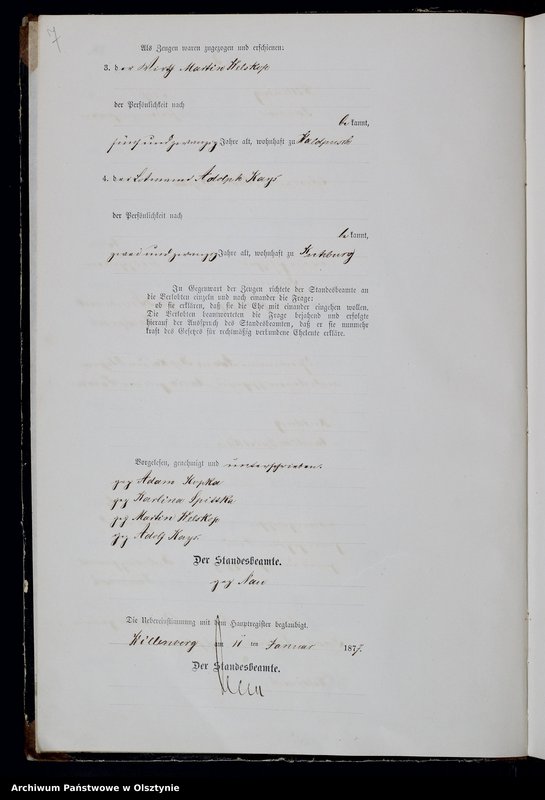 7
Als Zeugen waren zugezogen und erschienen:
3. der Wirth Martin Welskop
der Persönlichkeit nach
be kannt,
fünfundzwanzig Jahre alt, wohnhaft zu Waldpusch
4. der Adolph Kays
der Persönlichkeit nach
be kannt,
zweiundzwanzig Jahre alt, wohnhaft zu
In Gegenwart der Zeugen richtete der Standesbeamte an
die Verlobten einzeln und nach einander die Frage:
ob sie erklären, daß sie die Ehe mit einander eingehen wollen.
Die Verlobten beantworteten die Frage bejahend und erfolgte
hierauf der Ausspruch des Standesbeamten, daß er sie nunmehr
kraft des Gesetzes für rechtmäßig verbundene Eheleute erkläre.
Vorgelesen, genehmigt und unterschrieben.
gez Adam Kopka
gez Karlina Spittka
gez Martin Welskop
gez Adolf Kays
Der Standesbeamte.
gez Nau
Die Uebereinstimmung mit dem Hauptregister beglaubigt.
Willenberg am 11 ten Januar 1877.
Der Standesbeamte.
Nau
Archiwum Państwowe w Olsztynie